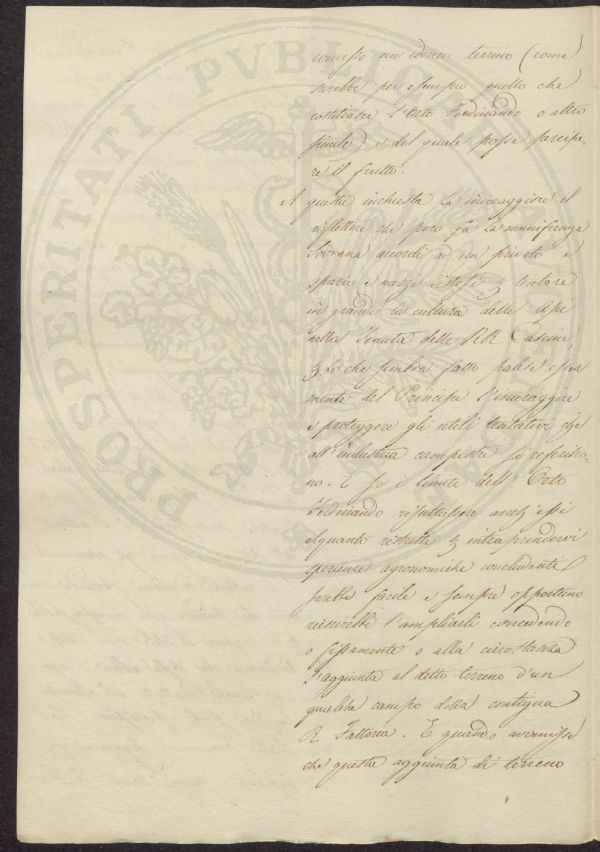 concesso un' idoneo terreno (come
sarebbe per esempio quello che
costituisce l'Orto Ferdinando o altro
simile) e del quale possa percipe-
re il frutto.
A questa inchiesta la incoraggisce il
riflettere che poco fa la munificenza
Sovrana accordò ad un privato e
spazio e mezzi estesi p tentare
in grande la cultura delle Api
nella Tenuta delle RR Cascine,
p lo che sembra fatto palese esser
mente del Principe l'incoraggire
e proteggere gli utili tentativi che
all'industria campestre si referisco-
no. E se i limiti dell'Orto
Ferdinando resultassero anch'essi
alquanto ristretti p intraprendervi
sperienze agronomiche concludenti,
sarebbe facile e sempre opportuno
riescirebbe l'ampliarli concedendo
o fissamente o alla circostanza
l'aggiunta al detto terreno d'un
qualche campo della contigua
R. Fattoria. E quando avvenisse
che questa aggiunta di terreno
PROSPERITATI PVBLICAE